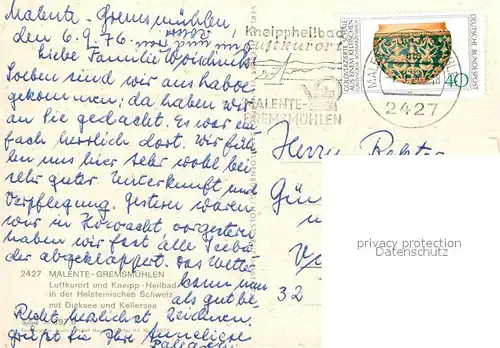 Malente-Gremsmühlen
den 6.9.76.
Liebe Familie
Soeben sind wir aus
gekommen; da haben wir
an Sie gedacht. Es war ein-
fach herrlich dort. Wir füh-
len uns hier sehr wohl bei
sehr guter Unterkunft und
Verpflegung. Gestern waren
wir in Howacht, vorgestern
haben wir fast alle
der abgeklappert. Das Wetter
kann man
als gut be-
Recht herzlichst zeichnen.
grüßt Sie Ihre Anneliese
2427 MALENTE-GREMSMÜHLEN
Luftkurort und Kneipp-Heilbad
in der Holsteinischen Schweiz
mit Dieksee und Kellersee
Kneippheilbad
Luftkurort
MALENTE-
GREMSMÜHLEN
GOLDVERZIERTE SCHALE
AUS EINEM KELTISCHEN
DEUTSCHE BUNDESPOST
40
2427
Herrn Rektor
32
privacy protection
Datenschutz